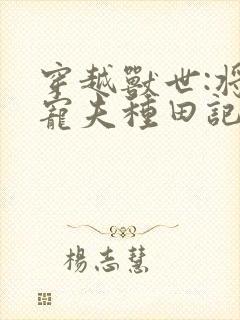 穿越獸世:將
寵夫種田記
楊志慧